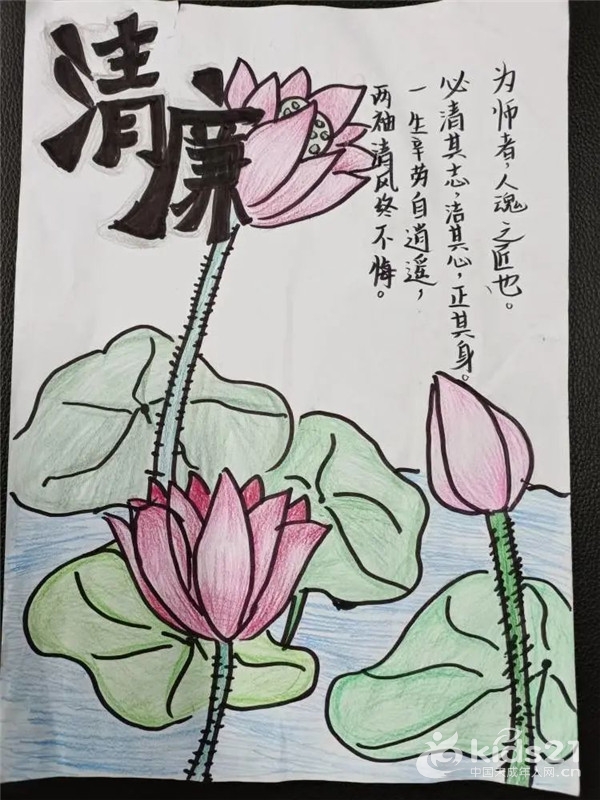 清廉
为师者，人魂之匠也。
必清其志，洁其心，正其身。
一生辛劳自逍遥，
两袖清风终不悔。
kids21
中国未成年人网.cn